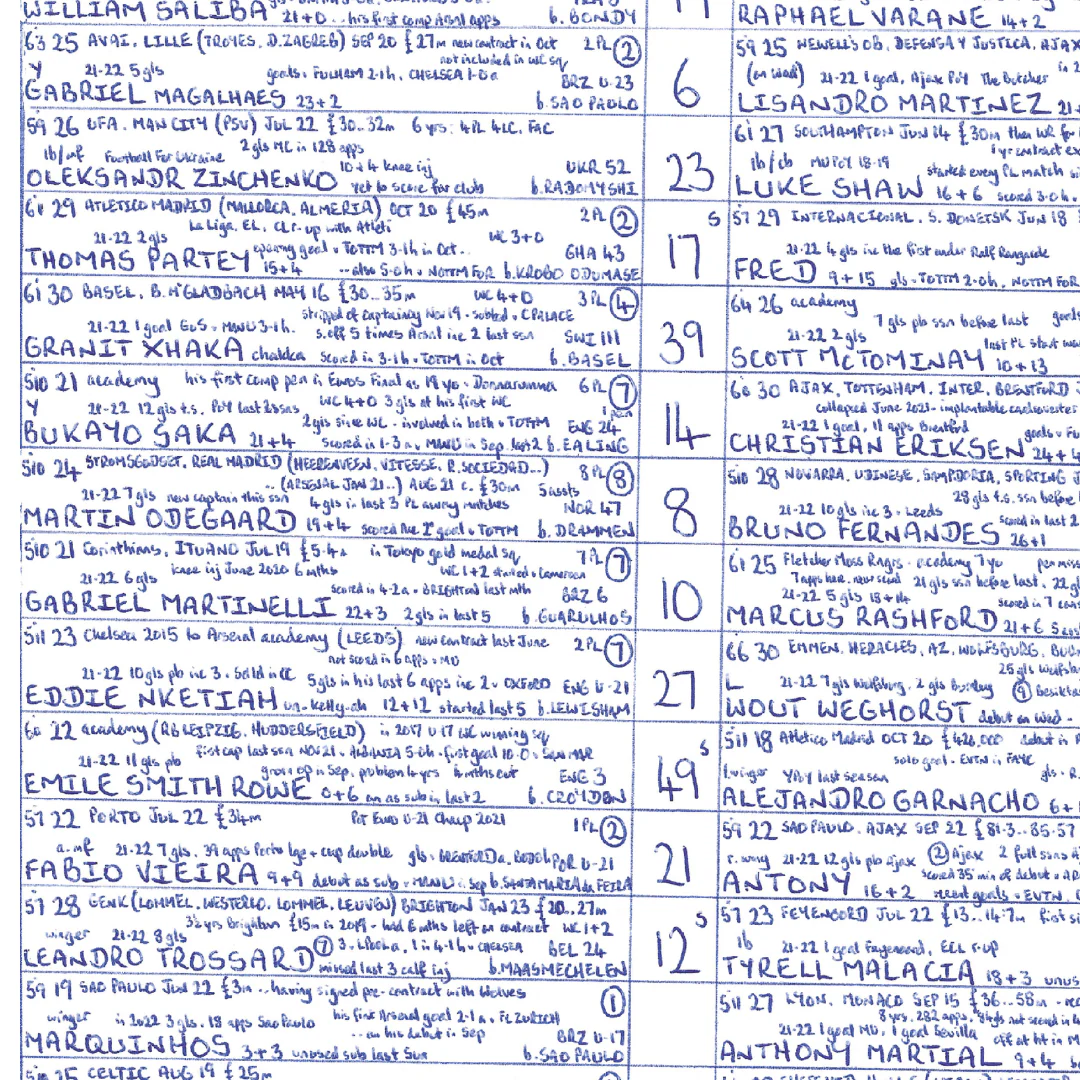 WILLIAM SALIBA 21+0 .. his first comp Arsnl apps b. BONDY
RAPHAEL VARANE 14+2
63 25 AVAI, LILLE (TROYES, D.ZAGREB) SEP 20 £27m new contract in Oct 2PL (2)
not included in WC sq
Y 21-22 5 gls goals v FULHAM 2-1h, CHELSEA 1-0a BRZ U-23
GABRIEL MAGALHAES 23+2 b. SAO PAOLO
6
59 25 NEWELL'S OB, DEFENSA Y JUSTICA, AJAX
21-22 1 goal, Ajax PoY The Butcher
LISANDRO MARTINEZ 21
59 26 UFA, MAN CITY (PSV) JUL 22 £30..32m 6 yrs: 4PL 4LC, FAC
lb/mf Football For Ukraine 2 gls MC in 128 apps
10+4 knee inj UKR 52
OLEKSANDR ZINCHENKO yet to score for club b. RADOMYSHI
23
61 27 SOUTHAMPTON JUN 14 £30m then WR for
1 yr contract ex
lb/cb MU PoY 18-19 started every PL match
LUKE SHAW 16+6 scored 3-0h
61 29 ATLETICO MADRID (MALLORCA, ALMERIA) OCT 20 £45m 2PL (2)
La Liga, EL, CL r-up with Atleti
21-22 2 gls WC 3+0
opening goal v TOTTM 3-1h in Oct.. GHA 43
THOMAS PARTEY 15+4 ..also 5-0h v NOTTM FOR b. KROBO ODUMASE
17
S
57 29 INTERNACIONAL, S. DONETSK JUN 18
21-22 4 gls inc the first under Ralf Rangnick
FRED 9+15 gls v TOTTM 2-0h, NOTTM FOR
61 30 BASEL, B. M'GLADBACH MAY 16 £30..35m WC 4+0 3PL (4)
stripped of captaincy Nov 19 - subbed v C PALACE
21-22 1 goal EoS v MANU 3-1h. s.off 5 times Arsnl inc 2 last ssn SWI 111
GRANIT XHAKA chakka scored in 3-1h v TOTTM in Oct b. BASEL
39
64 26 academy
7 gls pb ssn before last
21-22 2 gls last PL start
SCOTT McTOMINAY 10+13
510 21 academy his first comp pen in Euros Final as 19 yo - Donnarumma 6PL (7)
WC 4+0 3 gls at his first WC 1 pen
Y 21-22 12 gls t.s. PoY last 2 ssns 2 gls since WC - involved in both v TOTTM ENG 24
BUKAYO SAKA 21+4 scored in 1-3a v MANU in Sep, last 2 b. EALING
14
60 30 AJAX, TOTTENHAM, INTER, BRENTFORD
collapsed June 2021 - implantable cardioverter
21-22 1 goal, 11 apps Brentford
CHRISTIAN ERIKSEN 24+4
510 24 STROMSGODSET, REAL MADRID (HEERENVEEN, VITESSE, R.SOCIEDAD...) 8PL (8)
.. (ARSENAL JAN 21..) AUG 21 c. £30m 5 assts
21-22 7 gls new captain this ssn 4 gls in last 3 PL away matches NOR 47
MARTIN ODEGAARD 19+4 scored the 2nd goal v TOTTM b. DRAMMEN
8
510 28 NOVARRA, UDINESE, SAMPDORIA, SPORTING
28 gls t.s. ssn before
21-22 10 gls inc 3 v Leeds
BRUNO FERNANDES scored in last 2
26+1
510 21 Corinthians, ITUANO JUL 19 £5.4m in Tokyo gold medal sq 7PL (7)
knee inj June 2020 6 mths WC 1+2 started v Cameroon
21-22 6 gls scored in 4-2a v BRIGHTON last mth BRZ 6
GABRIEL MARTINELLI 22+3 2 gls in last 5 b. GUARULHOS
10
61 25 Fletcher Moss Rngrs - academy 7 yo
21 gls ssn before last, 22 gls
21-22 5 gls 18+14
MARCUS RASHFORD 21+6
511 23 Chelsea 2015 to Arsenal academy (LEEDS) new contract last June 2PL (7)
not scored in 6 apps v MU
21-22 10 gls pb inc 3 v Sunderland in CC 5 gls in his last 6 apps inc 2 v OXFORD ENG U-21
EDDIE NKETIAH un-ketty-ah 12+12 started last 5 b. LEWISHAM
27
66 30 EMMEN, HERACLES, AZ, WOLFSBURG, BUR
25 gls Wolfsburg
L 21-22 7 gls Wolfsburg, 2 gls Burnley (9) Besiktas
WOUT WEGHORST debut on Wed
60 22 academy (RB LEIPZIG, HUDDERSFIELD) in 2017 U-17 WC winning sq
first cap last ssn NOV 21 v ALBANIA 5-0h - first goal 10-0 v SAN MAR
21-22 11 gls pb groin op in Sep, problem 4 yrs 4 mths out ENG 3
EMILE SMITH ROWE 0+6 on as sub in last 2 b. CROYDON
49
S
511 18 Atletico Madrid OCT 20 £420,000 debut in
solo goal v EVTN in FAYC
l.winger YPoY last season
ALEJANDRO GARNACHO 6+
57 22 PORTO JUL 22 £34m Por Euro U-21 Champ 2021 1PL (2)
a.mf 21-22 7 gls, 39 apps Porto lge + cup double gls v BRENTFORD a, BODO h POR U-21
FABIO VIEIRA 9+9 debut as sub v MANU in Sep b. SANTA MARIA da FEIRA
21
59 22 SAO PAULO, AJAX SEP 22 £81.3..85.57
r.wing 21-22 12 gls pb Ajax (2) Ajax 2 full ssns
scored 35 min of debut v AR
ANTONY 16+2 recent goals v EVTN
57 28 GENK (LOMMEL, WESTERLO, LOMMEL, LEUVEN) BRIGHTON JAN 23 £20..27m
3½ yrs Brighton £15m in 2019 - had 6 mths left on contract WC 1+2
winger 21-22 8 gls (7) 3 v LPool a, 1 in 4-1h v CHELSEA BEL 24
LEANDRO TROSSARD missed last 3 calf inj b. MAASMECHELEN
12
S
57 23 FEYENOORD JUL 22 £13..14.7m first si
lb 21-22 1 goal Feyenoord, ECL r-up
TYRELL MALACIA 18+3 unus
59 19 SAO PAULO JUN 22 £3m .. having signed pre-contract with Wolves (1)
winger in 2022 3 gls, 18 apps Sao Paulo his first Arsenal goal 2-1a v FC ZURICH
..on his debut in Sep BRZ U-17
MARQUINHOS 3+3 unused sub last Sun b. SAO PAULO
511 27 LYON, MONACO SEP 15 £36..58m
8 yrs, 282 apps
21-22 1 goal MU, 1 goal Sevilla off at ht in M
ANTHONY MARTIAL 9+4
CELTIC AUG 19 £25m